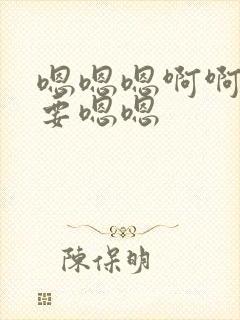 嗯嗯嗯啊啊
要嗯嗯
陳保明